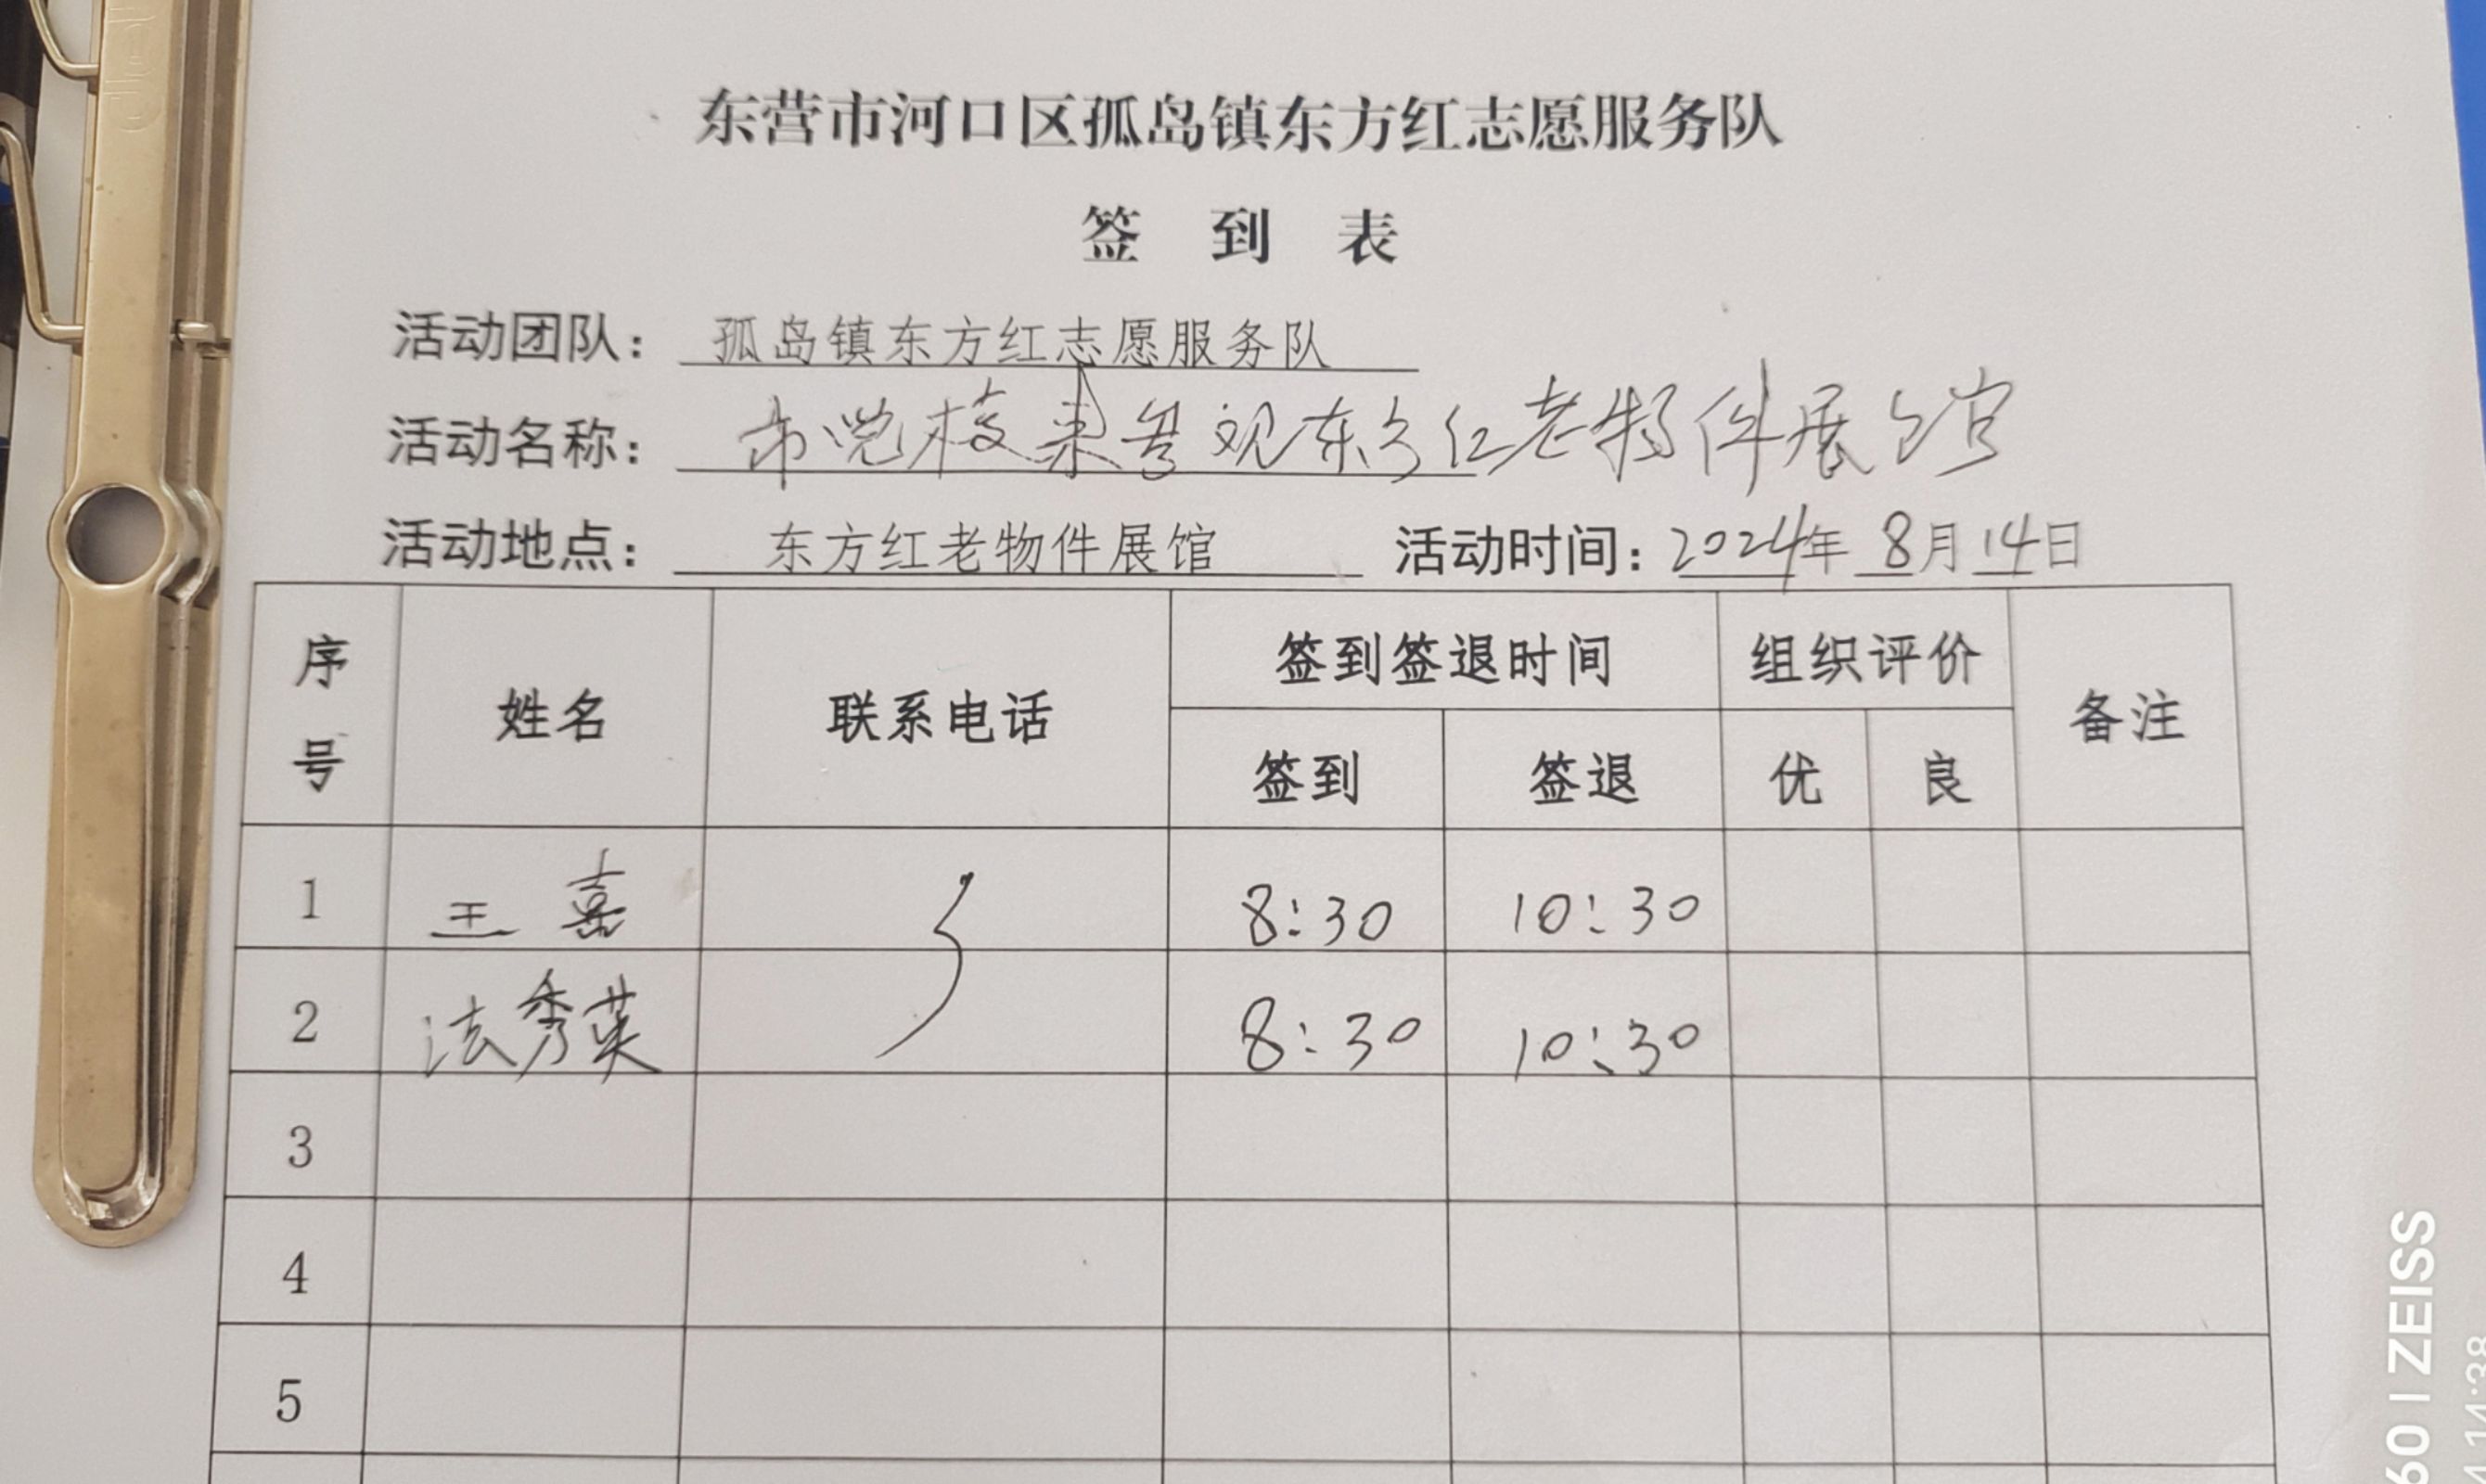 东营市河口区孤岛镇东方红志愿服务队
签 到 表
活动团队： 孤岛镇东方红志愿服务队
活动名称： 市党校来参观东方红老物件展馆
活动地点： 东方红老物件展馆 活动时间：2024年 8月14日
序号 姓名 联系电话 签到签退时间 组织评价 备注
签到 签退 优 良
1 王 嘉 8:30 10:30
2 法秀英 8:30 10:30
3
4
5
60 | ZEISS
14:38